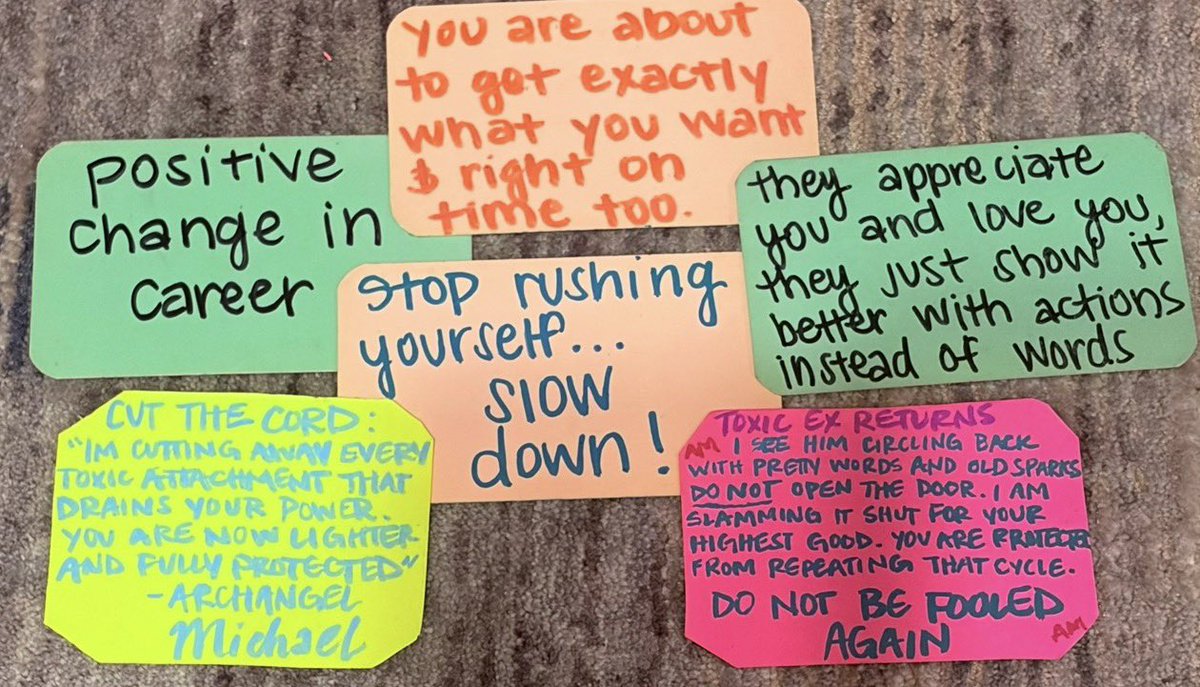 you are about
to get exactly
what you want
$ right on
time too.
positive
change in
career
they appreciate
you and love you,
they just show it
better with actions
instead of words
stop rushing
yourself...
slow
down!
CUT THE CORD:
"IM CUTTING AWAY EVERY
TOXIC ATTACHMENT THAT
DRAINS YOUR POWER.
YOU ARE NOW LIGHTER
AND FULLY PROTECTED"
-ARCHANGEL
Michael
TOXIC EX RETURNS
AM I SEE HIM CIRCLING BACK
WITH PRETTY WORDS AND OLD SPARKS
DO NOT OPEN THE DOOR. I AM
SLAMMING IT SHUT FOR YOUR
HIGHEST GOOD. YOU ARE PROTECTED
FROM REPEATING THAT CYCLE.
DO NOT BE FOOLED
AGAIN AM